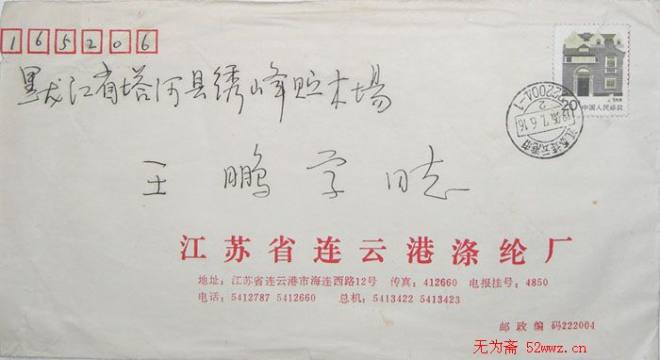 165206
20
中国人民邮政
222004-1
江苏连云港
黑龙江省塔河县绣峰贮木場
王鹏学同志
江苏省连云港涤纶厂
地址：江苏省连云港市海连西路12号 传真：412660 电报挂号：4850
电话：5412787 5412660 总机：5413422 5413423
邮政编码222004
无为斋 52wwz.cn